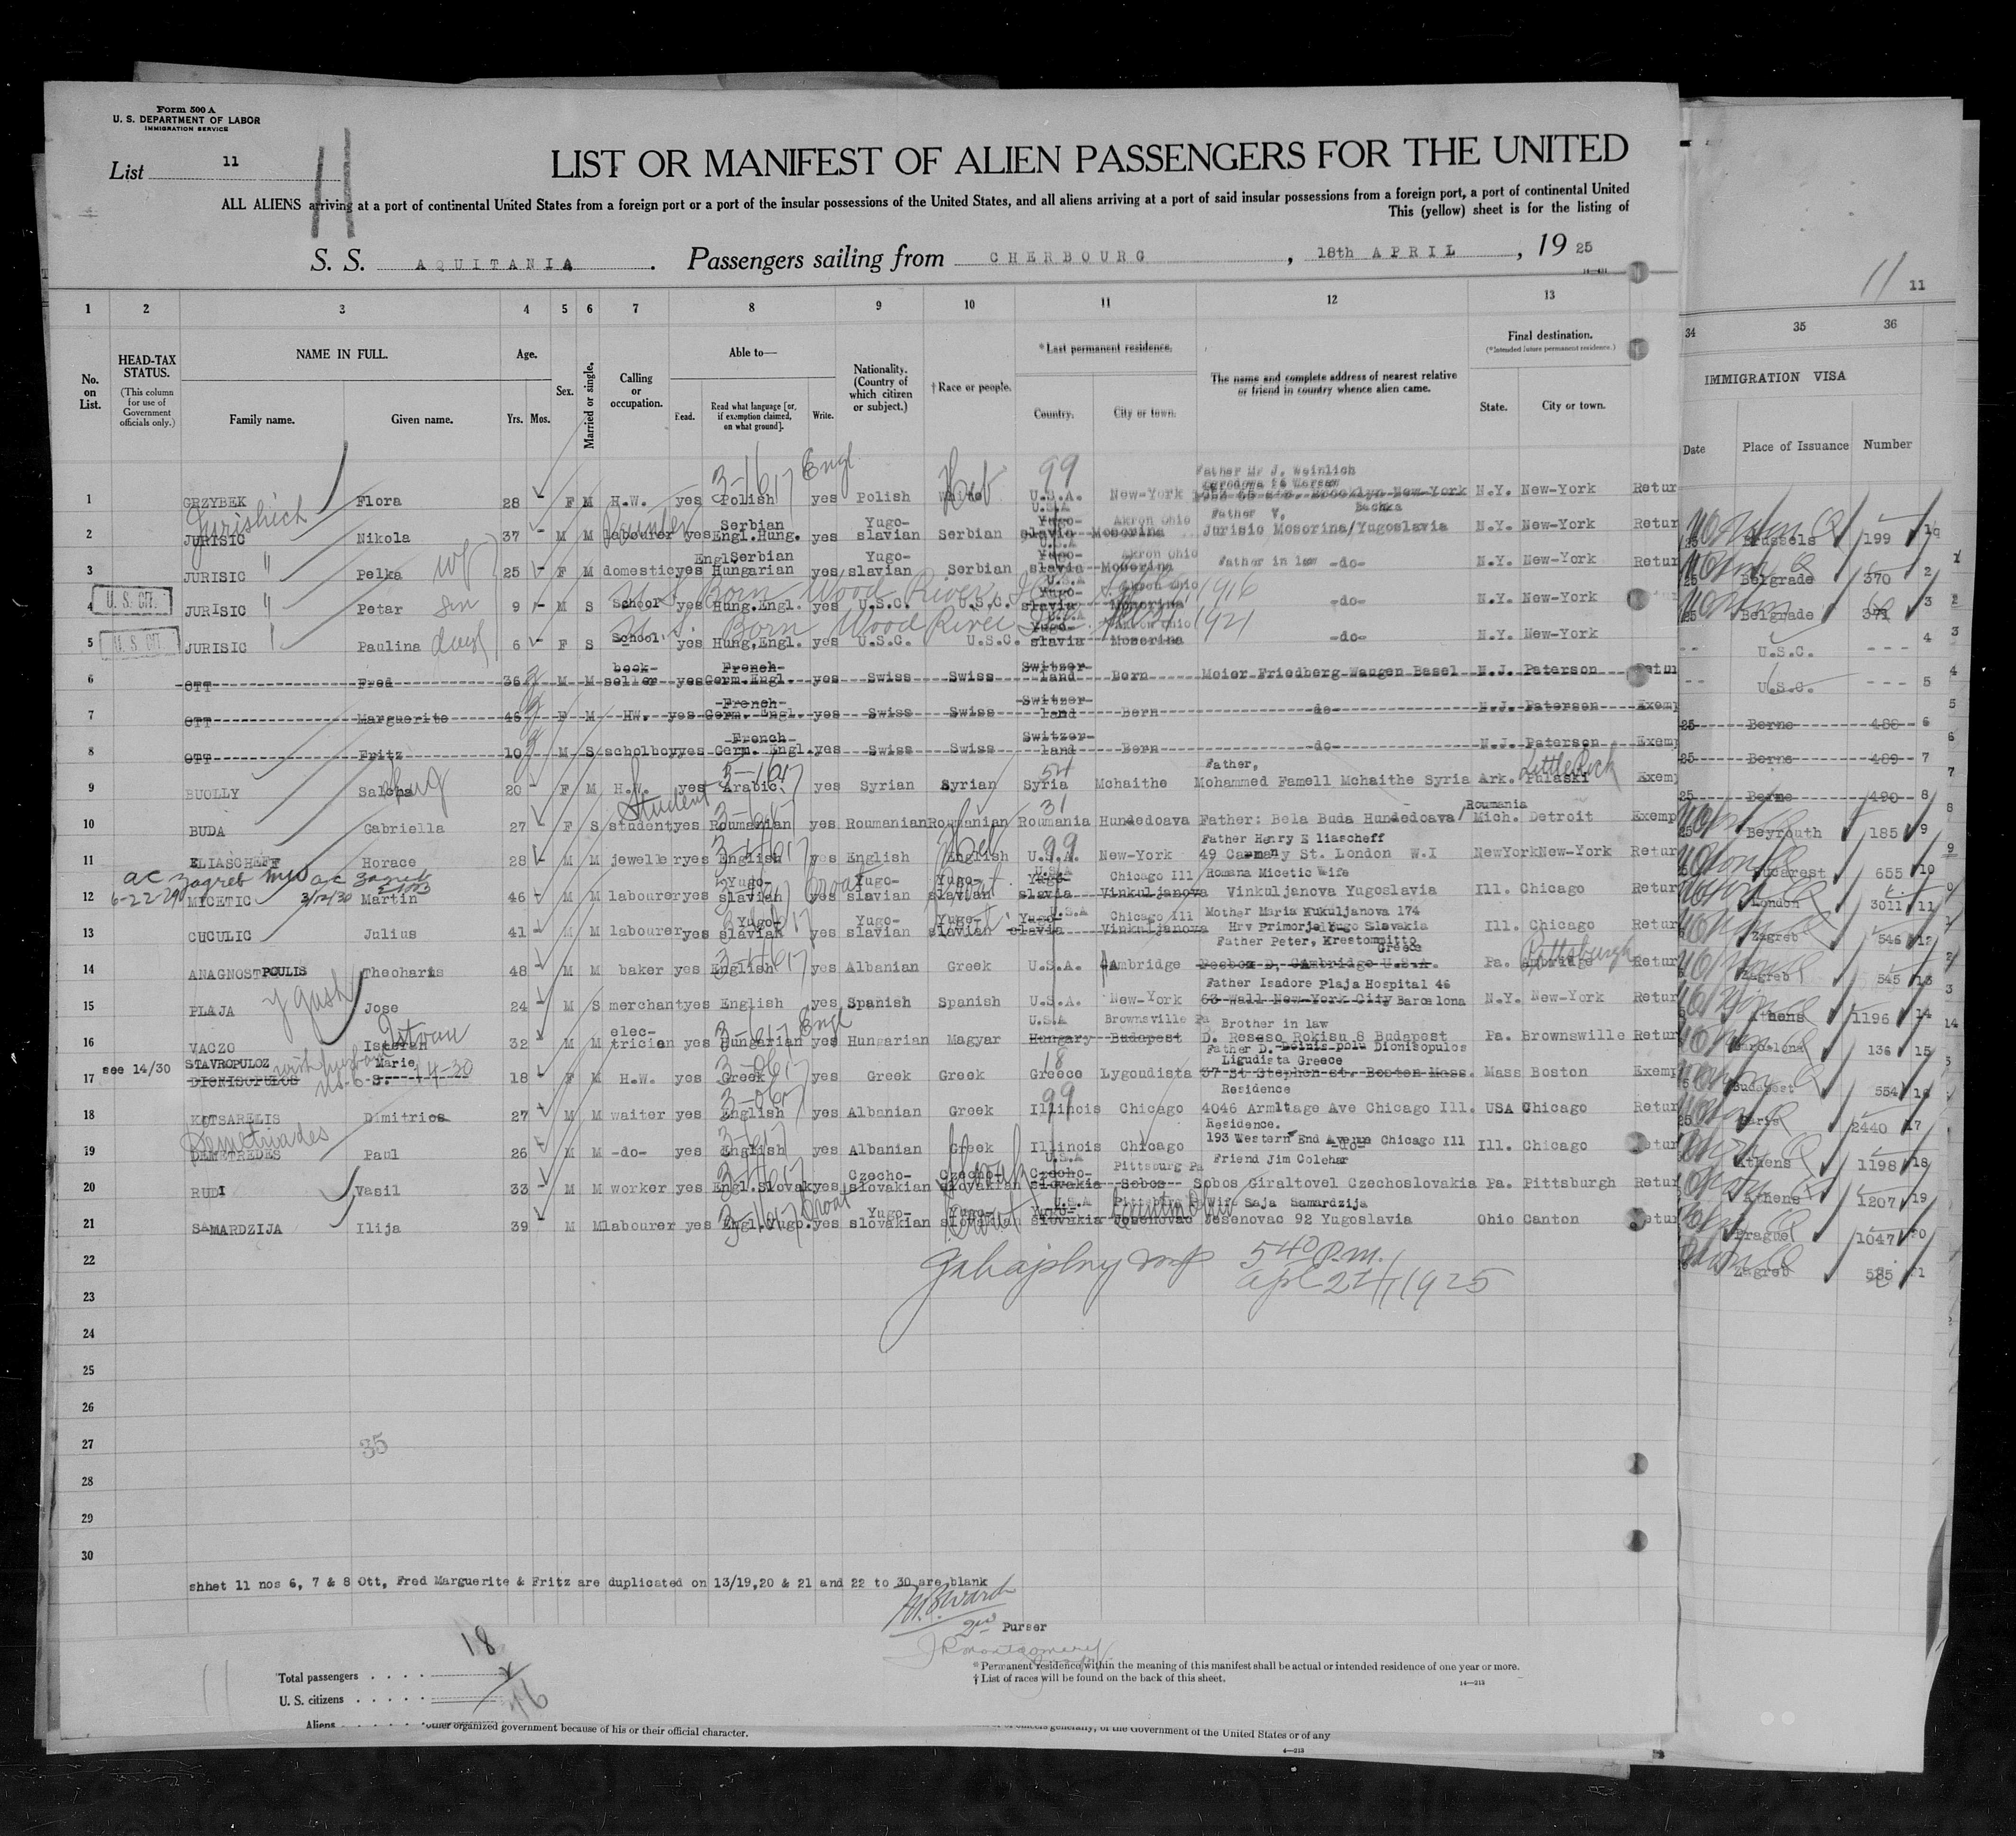 Form 500 A
U. S. DEPARTMENT OF LABOR
IMMIGRATION SERVICE
List 11
LIST OR MANIFEST OF ALIEN PASSENGERS FOR THE UNITED
ALL ALIENS arriving at a port of continental United States from a foreign port or a port of the insular possessions of the United States, and all aliens arriving at a port of said insular possessions from a foreign port, a port of continental United
This (yellow) sheet is for the listing of
S. S. AQUITANIA. Passengers sailing from CHERBOURG, 18th APRIL, 19 25
11 11
1 2 3 4 5 6 7 8 9 10 11 12 13 34 35 36
No. on List.
HEAD-TAX STATUS.
(This column for use of Government officials only.)
NAME IN FULL.
Family name. Given name.
Age.
Yrs. Mos.
Sex.
Married or single.
Calling or occupation.
Able to—
Read. Read what language [or, if exemption claimed, on what ground]. Write.
Nationality. (Country of which citizen or subject.)
† Race or people.
* Last permanent residence.
Country. City or town.
The name and complete address of nearest relative or friend in country whence alien came.
Final destination.
(* Intended future permanent residence.)
State. City or town.
IMMIGRATION VISA
Date Place of Issuance Number
Father Mr J. Weinlich
1 GRZYBEK Flora 28 F M H.W. yes Polish yes Polish White Heb U.S.A. New-York N.Y. New-York Retur
Jurishich
2 JURISIC Nikola 37 M M labourer yes Serbian Engl.Hung. yes Yugo-slavian Serbian U.S.A Yugo-slavia Akron Ohio Mosorina Father V. Jurisic Mosorina/Yugoslavia Bachka N.Y. New-York Retur
3 JURISIC " Pelka wf 25 F M domestic yes Engl Serbian Hungarian yes Yugo-slavian Serbian U.S.A Yugo-slavia Akron Ohio Mosorina Father in law -do- N.Y. New-York Retur
U. S. CIT.
4 JURISIC " Petar son 9 M S School yes Hung.Engl. yes U.S.C. U.S.C. U.S.A Yugo-slavia Akron Ohio Mosorina -do- N.Y. New-York
U.S. Born Wood River 1916
U. S. CIT.
5 JURISIC " Paulina 6 F S School yes Hung.Engl. yes U.S.C. U.S.C. Yugo-slavia Akron Ohio Mosorina -do- N.Y. New-York
U.S. Born Wood River 1921
6 OTT Fred 36 M M book-seller yes French-Germ.Engl. yes Swiss Swiss Switzer-land Bern Meier Friedberg Waugen Basel N.J. Paterson Retur
7 OTT Marguerite 46 F M HW. yes French-Germ. Engl. yes Swiss Swiss Switzer-land Bern -do- N.J. Paterson Exemp
8 OTT Fritz 10 M S scholboy yes French-Germ. Engl. yes Swiss Swiss Switzer-land Bern -do- N.J. Paterson Exemp
9 BUOLLY Saleha 20 F M H.W. yes Arabic. yes Syrian Syrian Syria Mchaithe Father, Mohammed Famell Mchaithe Syria Ark. Pulaski Little Rock Exemp
10 BUDA Gabriella 27 F S student yes Roumanian yes Roumanian Roumanian Roumania Hundedoava Father: Bela Buda Hundedoava/Roumania Mich. Detroit Exemp
11 ELIASCHEFF Horace 28 M M jeweller yes English yes English English Heb U.S.A. New-York Father Henry E liascheff 49 Carnany St. London W.I NewYork New-York Retur
ac Zagreb ac Zagreb
6-22-29 3/12/30
12 MICETIC Martin 46 M M labourer yes Yugo-slavian yes Yugo-slavian Yugo-slavian U.S.A Yugo-slavia Chicago Ill Vinkuljanova Romana Micetic Wife Vinkuljanova Yugoslavia Ill. Chicago Retur
13 CUCULIC Julius 41 M M labourer yes Yugo-slavian yes Yugo-slavian Yugo-slavian U.S.A Yugo-slavia Chicago Ill Vinkuljanova Mother Maria Kukuljanova 174 Hrv Primorje Yugo Slavakia Ill. Chicago Retur
14 ANAGNOSTPOULIS Theoharis 48 M M baker yes English yes Albanian Greek U.S.A. Ambridge Father Peter, Krestommitto Greece Posbox D, Cambridge U.S.A. Pa. Ambridge Pittsburgh Retur
15 PLAJA Jose 24 M S merchant yes English yes Spanish Spanish U.S.A. New-York Father Isadore Plaja Hospital 46 63 Wall New-York City Barcelona N.Y. New-York Retur
16 VACZO Istefan Istvan 32 M M elec-trician yes Hungarian Engl yes Hungarian Magyar U.S.A Hungary Brownsville Pa Budapest Brother in law D. Resoso Rokisu 8 Budapest Pa. Brownswille Retur
see 14/30
17 STAVROPULOZ DIONISOPULOS Marie 18 F M H.W. yes Greek yes Greek Greek Greece Lygoudista Father D. Dionisopulos Ligudista Greece 37 St Stephen st. Boston Mass. Mass Boston Exemp
18 KOTSARELIS Dimitrios 27 M M waiter yes English yes Albanian Greek Illinois Chicago Residence 4046 Armitage Ave Chicago Ill. USA Chicago Retur
Demetriades
19 DEMETREDES Paul 26 M M -do- yes English yes Albanian Greek Illinois Chicago Residence. 193 Western End Avenue Chicago Ill -do- Ill. Chicago Retur
20 RUDI Vasil 33 M M worker yes Engl.Slovak yes Czecho-slovakian Czecho-slovakian Slovak U.S.A Czecho-slovakia Pittsburg Pa Sobos Friend Jim Colehar Sobos Giraltovel Czechoslovakia Pa. Pittsburgh Retur
21 SAMARDZIJA Ilija 39 M M labourer yes Engl.Yugo. yes Yugo-slovakian Yugo-slovakian Croat U.S.A Yugo-slovakia Pittsburg Pa Jesenovac Canton Ohio Wife Saja Samardzija Jesenovac 92 Yugoslavia Ohio Canton Retur
22 540 P.M.
Apl 24/1925
23
24
25
26
27 35
28
29
30
Brussels 199
Belgrade 370 2
Belgrade 371 3
U.S.C. - - - 4
U.S.C. - - - 5
25 Berne 488 6
25 Berne 489 7
25 Berne 490 8
25 Beyrouth 185 9
Bucarest 655 10
London 3011 11
Zagreb 546 12
Zagreb 545 13
Athens 1196 14
Barcelona 136 15
Budapest 554 16
Paris 2440 17
Athens 1198 18
Athens 1207 19
Prague 1047 20
Zagreb 585 21
shhet 11 nos 6, 7 & 8 Ott, Fred Marguerite & Fritz are duplicated on 13/19,20 & 21 and 22 to 30 are blank
2nd Purser
18
Total passengers . . . .
U. S. citizens . . . . .
Aliens . . . . .
* Permanent residence within the meaning of this manifest shall be actual or intended residence of one year or more.
† List of races will be found on the back of this sheet.
14—213
other organized government because of his or their official character.
of officers generally, of the Government of the United States or of any